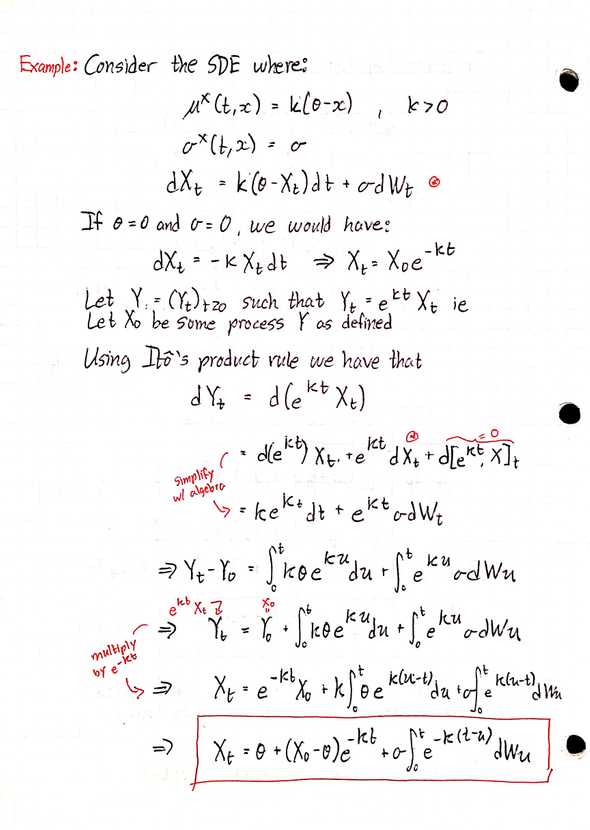 Example: Consider the SDE where:
μˣ(t,x) = k(θ-x) , k>0
σˣ(t,x) = σ
dXₜ = k(θ-Xₜ)dt + σdWₜ ⊛
If θ=0 and σ=0, we would have:
dXₜ = -k Xₜdt ⇒ Xₜ = X₀e^{-kt}
Let Y = (Yₜ)ₜ≥₀ such that Yₜ = e^{kt} Xₜ ie
Let X₀ be some process Y as defined
Using Itô's product rule we have that
dYₜ = d(e^{kt} Xₜ)
= d(e^{kt}) Xₜ + e^{kt} dXₜ + d[e^{kt}, X]ₜ
⊛ = 0
simplify
w/ algebra
= ke^{kt}dt + e^{kt}σdWₜ
⇒ Yₜ-Y₀ = ∫₀ᵗ kθe^{ku}du + ∫₀ᵗ e^{ku} σdWu
e^{kt} Xₜ X₀ =
⇒ Yₜ = Y₀ + ∫₀ᵗ kθe^{ku}du + ∫₀ᵗ e^{ku} σdWu
multiply
by e^{-kt}
⇒ Xₜ = e^{-kt}X₀ + k∫₀ᵗ θe^{k(u-t)}du + σ∫₀ᵗ e^{k(u-t)}dWu
⇒ Xₜ = θ + (X₀-θ)e^{-kt} + σ∫₀ᵗ e^{-k(t-u)}dWu